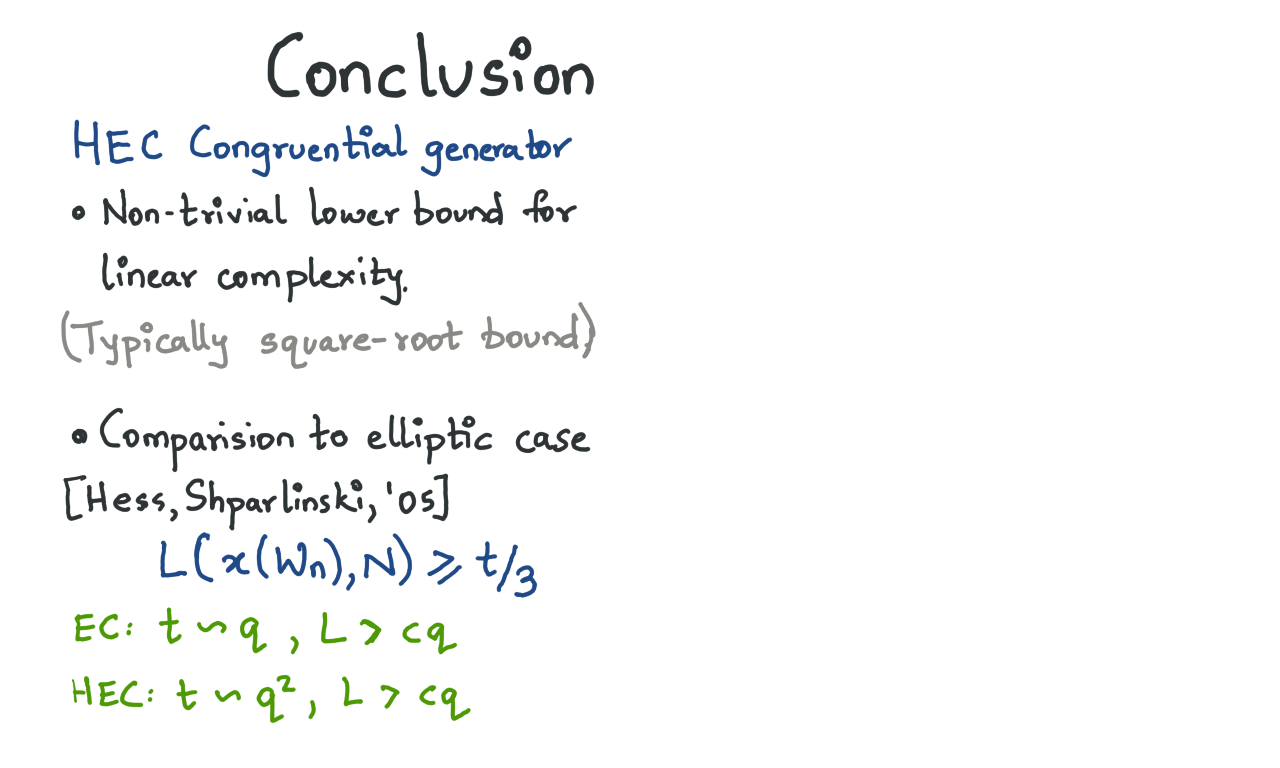 Conclusion
HEC Congruential generator
• Non-trivial lower bound for
linear complexity.
(Typically square-root bound)
• Comparision to elliptic case
[Hess, Shparlinski, '05]
L(x(Wn), N) ⩾ t/3
EC: t ∽ q , L > cq
HEC: t ∽ q², L > cq